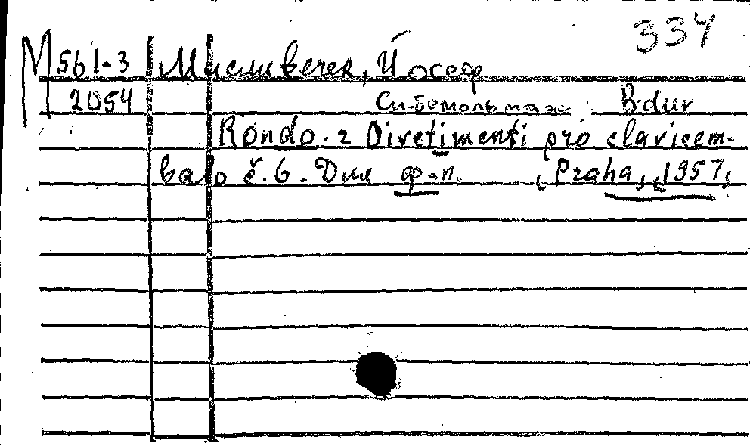 334
М 561-3 Мисливечек, Йосеф
2054 Си-бемоль маж. B dur
Rondo z Divetimenti pro clavicem-
balo č. 6. Для ф-п. , Praha, 1957,